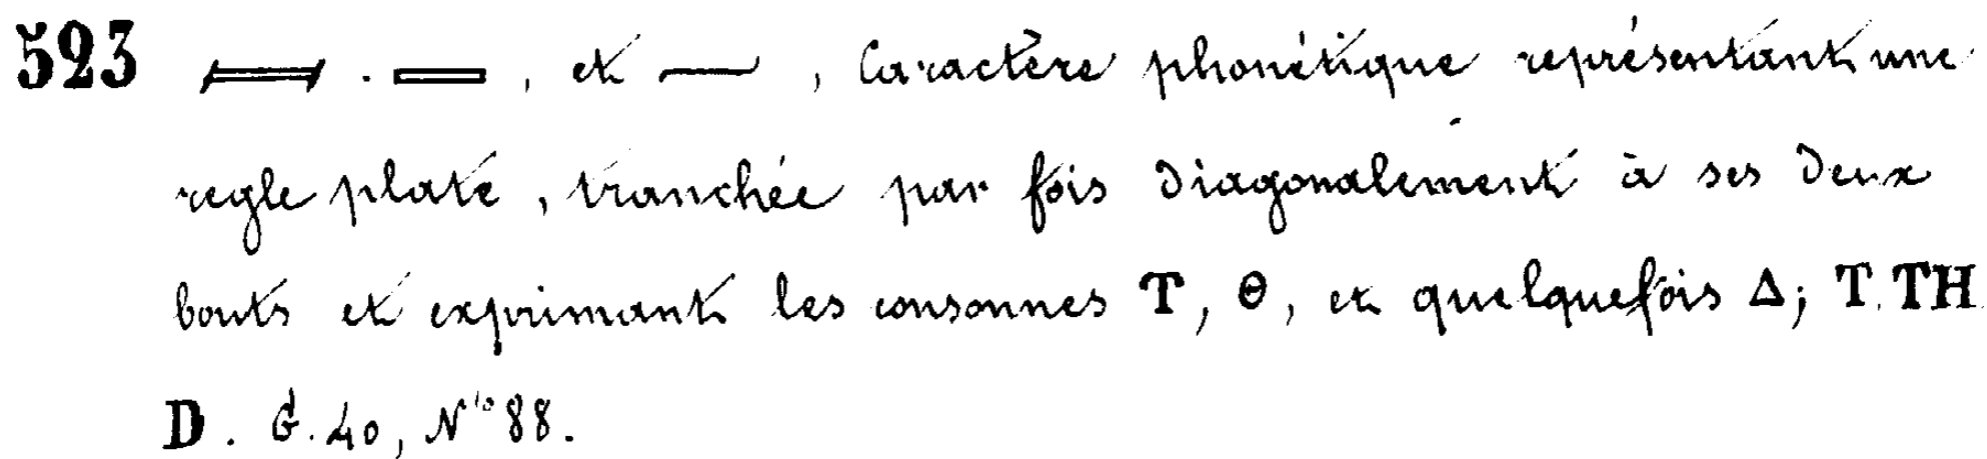 523 . , et , Caractère phonétique représentant une
regle plate, tranchée par fois diagonalement à ses deux
bouts et exprimant les consonnes T, Θ, et quelquefois Δ; T. TH
D. G. 40, Nº 88.